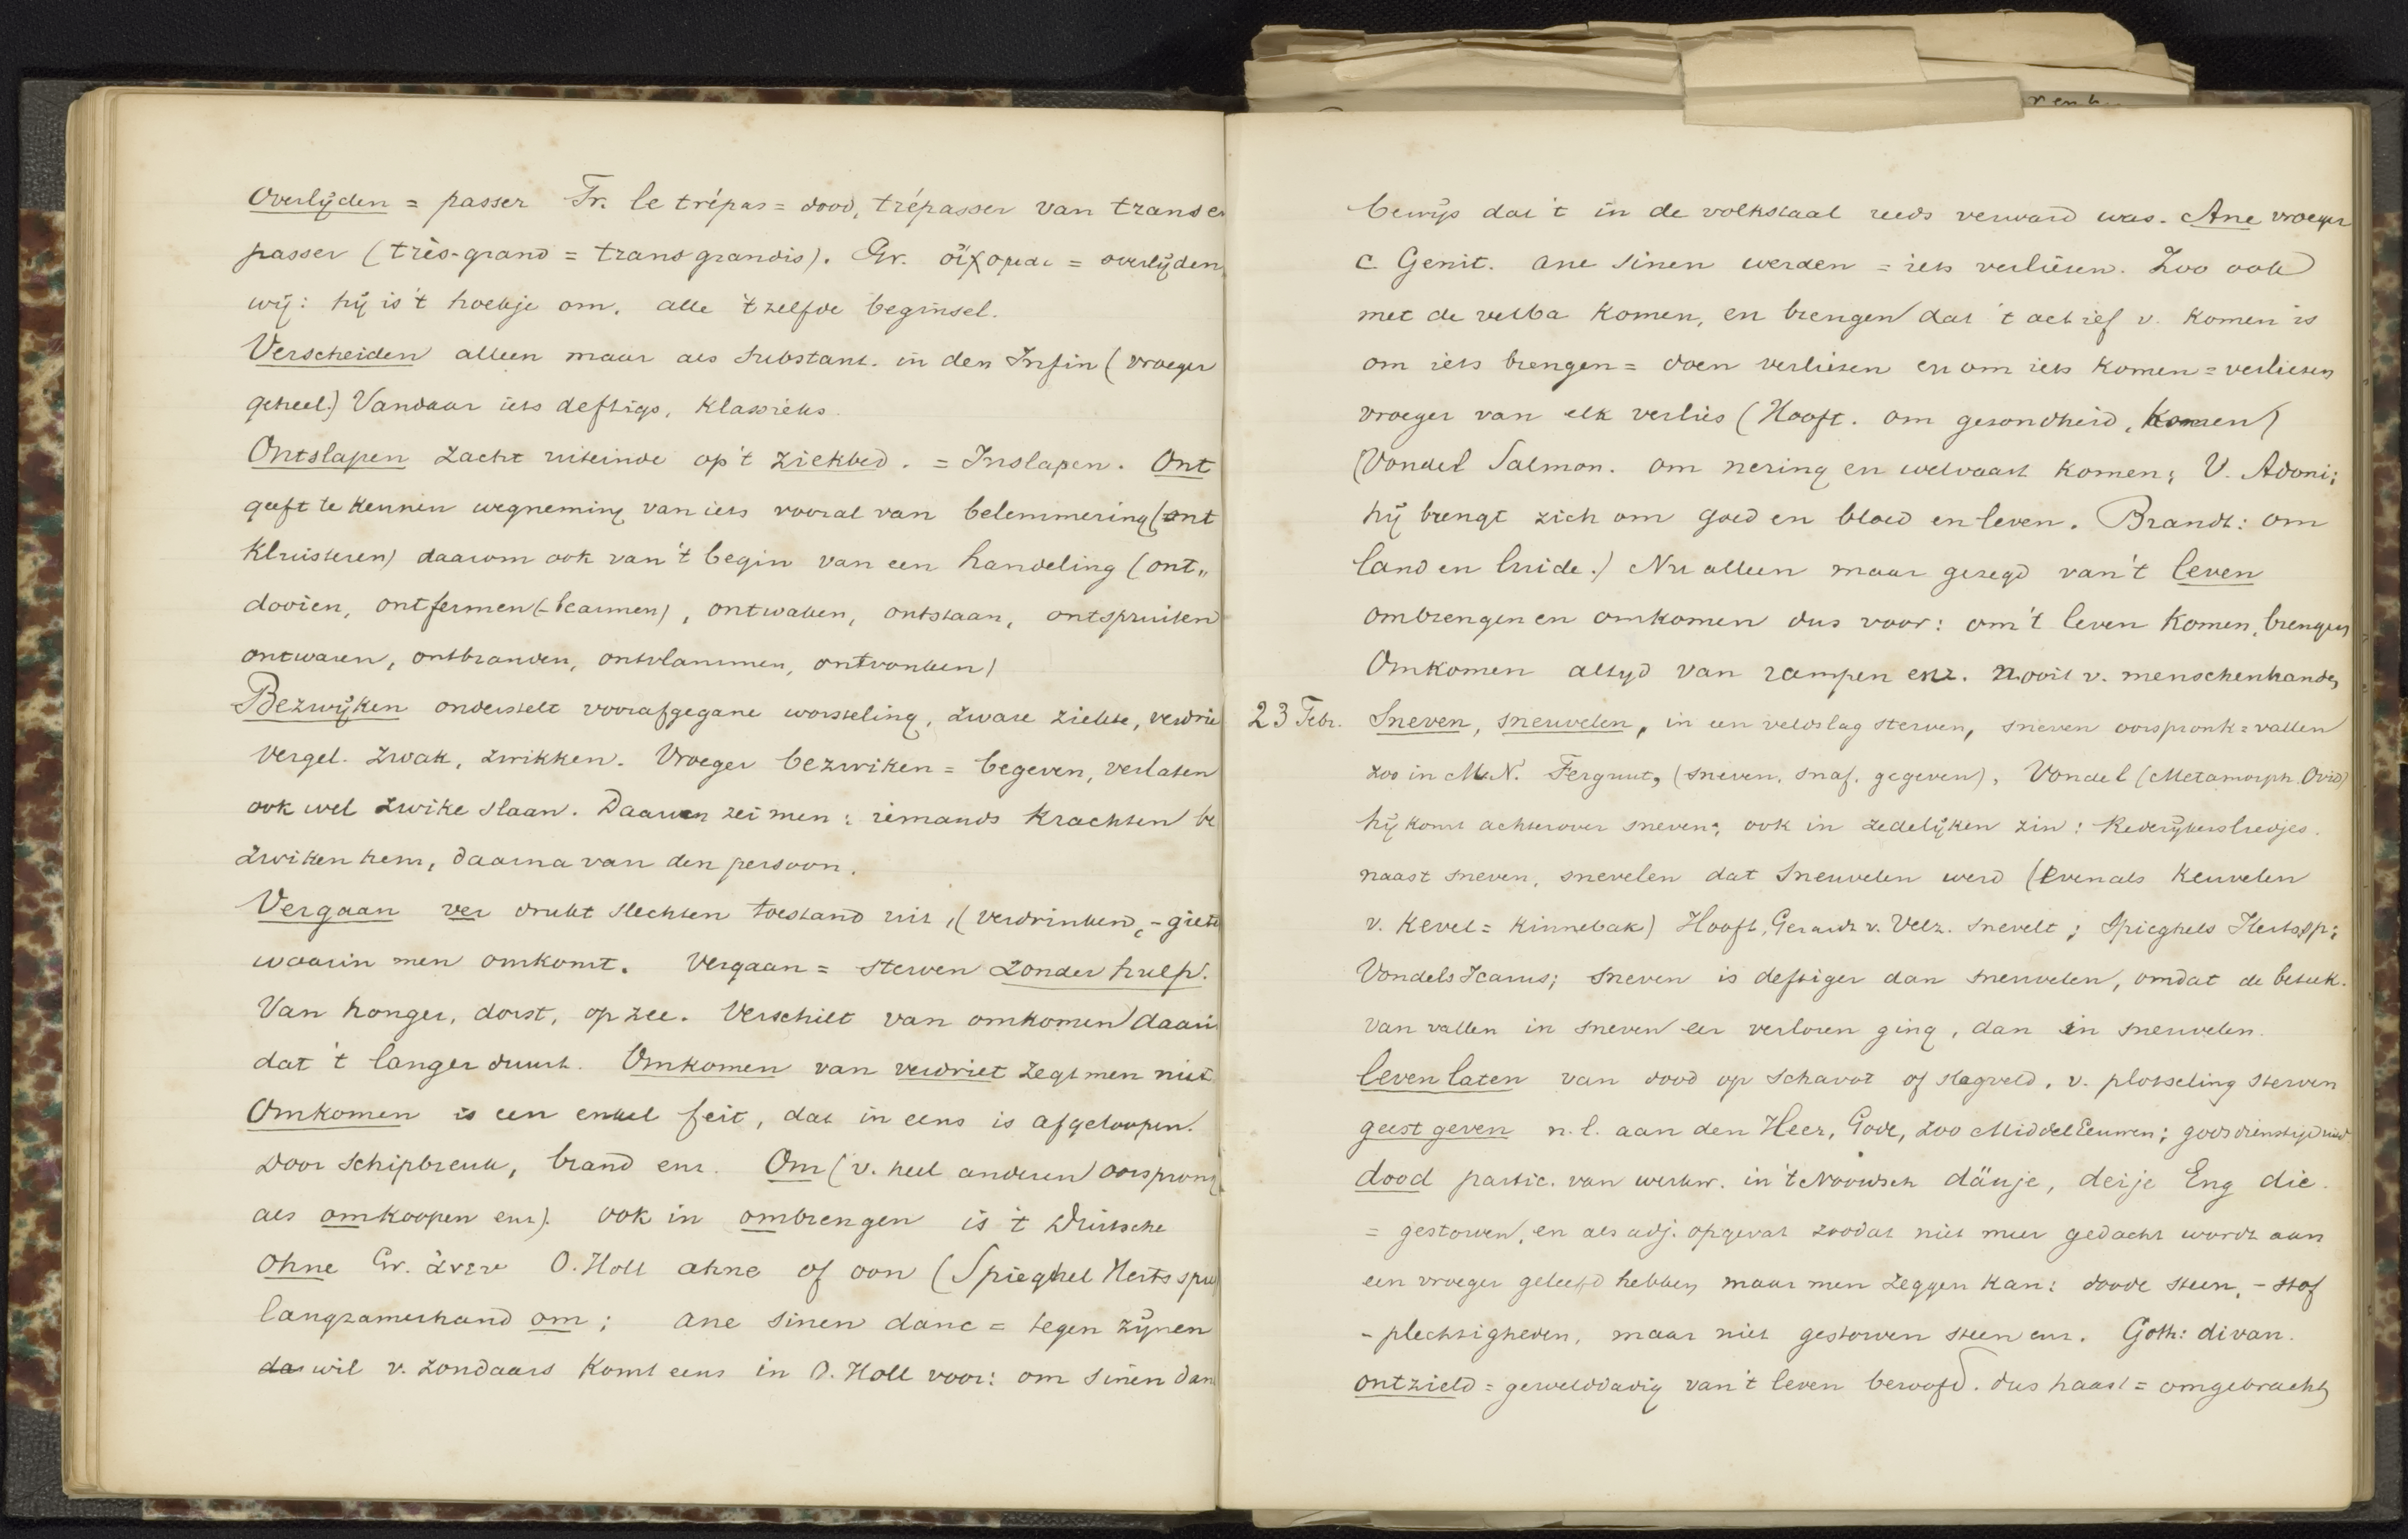 Overlijden = passer Fr. le trépas = dood, trépasser van trans e
passer (très-grand = trans grandis). Gr. οἴχομαι = overlijden
wij: hij is 't hoekje om. alle 't zelfde beginsel.
Verscheiden alleen maar als substant. in den Infin (vroeger
geheel.) Vandaar iets deftigs, klassieks.
Ontslapen zacht uiteinde op 't ziekbed. = Inslapen. Ont
geeft te kennen wegneming van iets vooral van belemmering (ont
kluisteren) daarom ook van 't begin van een handeling (ont„
dooien, ontfermen (-barmen), ontwaken, ontstaan, ontspruiten
ontwaren, ontbranden, ontvlammen, ontvonken)
Bezwijken onderstelt voorafgegane worsteling, zware ziekte, verdrie
Vergel. zwak, zwikken. Vroeger bezwiken = begeven, verlaten
ook wel zwike slaan. Daarom zei men: iemands krachten be
zwiken hem, daarna van den persoon.
Vergaan ver drukt slechten toestand uit, (verdrinken, - giete
waarin men omkomt. Vergaan = sterven zonder hulp.
Van honger, dorst, op zee. Verschilt van omkomen daari
dat 't langer duurt. Omkomen van verdriet zegt men niet
Omkomen is een enkel feit, dat in eens is afgeloopen.
Door schipbreuk, brand enz. Om (v. heel anderen oorsprong
als omkoopen enz). ook in ombrengen is 't Duitsche
Ohne Gr. ἄνευ O. Holl ahne of oon (Spieghel Herts spie
langzamerhand om; ane sinen danc = tegen zijnen
da wil v. zondaars komt eens in O. Holl voor: om sinen dan
bewijs dat 't in de volkstaal reeds verward was. Ane vroeger
c Genit. ane sinen werden = iets verliezen. Zoo ook
met de verba komen, en brengen dat 't actief v. komen is
om iets brengen = doen verliezen en om iets komen = verliezen
vroeger van elk verlies (Hooft. om gezondheid, komen)
(Vondel Salmon. om nering en welvaart komen; V. Adoni:
hij brengt zich om goed en bloed en leven. Brandt: om
land en luide.) Nu alleen maar gezegd van 't leven
ombrengen en omkomen dus voor: om 't leven komen, brengen
Omkomen altyd van rampen enz. nooit v. menschenhanden
23 Febr. Sneven, sneuvelen, in een veldslag sterven, sneven oorspronk = vallen
zoo in M.N. Ferguut, (sneven, snaf, gegeven), Vondel (Metamorph. Ovid)
hij komt achterover sneven; ook in zedelijken zin: Rederijkersliedjes.
naast sneven, snevelen dat sneuvelen werd (Evenals keuvelen
v. kevel = kinnebak) Hooft, Gerardt v. Velz. snevelt; Spieghels Hertssp:
Vondels Icarus; sneven is deftiger dan sneuvelen, omdat de beteek.
van vallen in sneven eer verloren ging, dan in sneuvelen.
leven laten van dood op schavot of slagveld. v. plotseling sterven
geest geven n.l. aan den Heer, Gode, zoo MiddelEeuwen;
dood partic. van werkw. in 't Noordsch däuje, deije Eng die.
= gestorven, en als adj. opgevat zoodat niet meer gedacht wordt aan
een vroeger geleefd hebben maar men zeggen kan: doode steen, - stof
- plechtigheden, maar niet gestorven steen enz. Goth: divan.
ontzield = gewelddadig van 't leven beroofd. dus haast = omgebracht